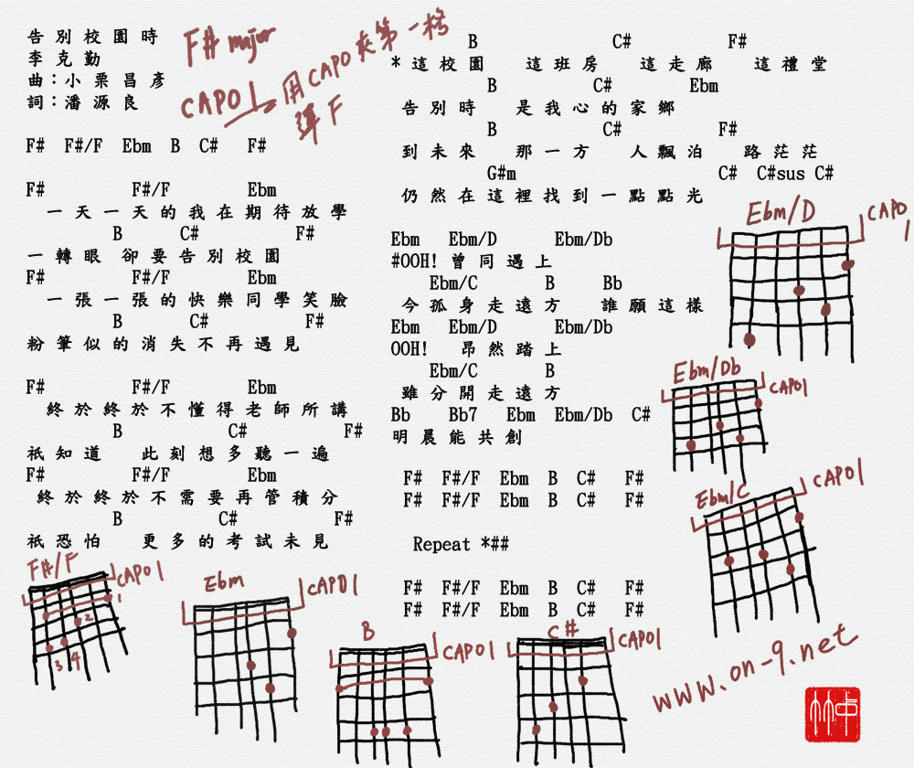 告別校園時
李克勤
曲:小栗昌彥
詞:潘源良
F# major
CAPO 1 用CAPO夾第一格
彈F
F# F#/F Ebm B C# F#
F# F#/F Ebm
一天一天的我在期待放學
B C# F#
一轉眼 卻要告別校園
F# F#/F Ebm
一張一張的快樂同學笑臉
B C# F#
粉筆似的消失不再遇見
F# F#/F Ebm
終於終於不懂得老師所講
B C# F#
祇知道 此刻想多聽一遍
F# F#/F Ebm
終於終於不需要再管積分
B C# F#
祇恐怕 更多的考試未見
B C# F#
* 這校園 這班房 這走廊 這禮堂
B C# Ebm
告別時 是我心的家鄉
B C# F#
到未來 那一方 人飄泊 路茫茫
G#m C# C#sus C#
仍然在這裡找到一點點光
Ebm Ebm/D Ebm/Db
#OOH! 曾同遇上
Ebm/C B Bb
今孤身走遠方 誰願這樣
Ebm Ebm/D Ebm/Db
OOH! 昂然踏上
Ebm/C B
雖分開走遠方
Bb Bb7 Ebm Ebm/Db C#
明晨能共創
F# F#/F Ebm B C# F#
F# F#/F Ebm B C# F#
Repeat *##
F# F#/F Ebm B C# F#
F# F#/F Ebm B C# F#
Ebm/D CAPO 1
Ebm/Db CAPO1
Ebm/C CAPO1
F#/F CAPO 1
1
2
3 4
Ebm CAPO1
B CAPO1
C# CAPO1
www.on-9.net